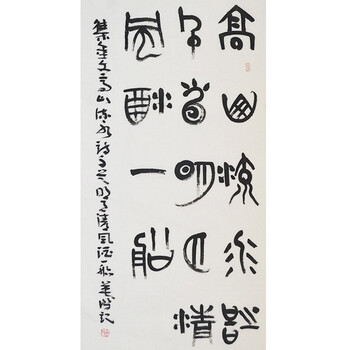 高山流水詩
千首明月清
風酒一船
集金文高山流水詩千首明月清風酒一船